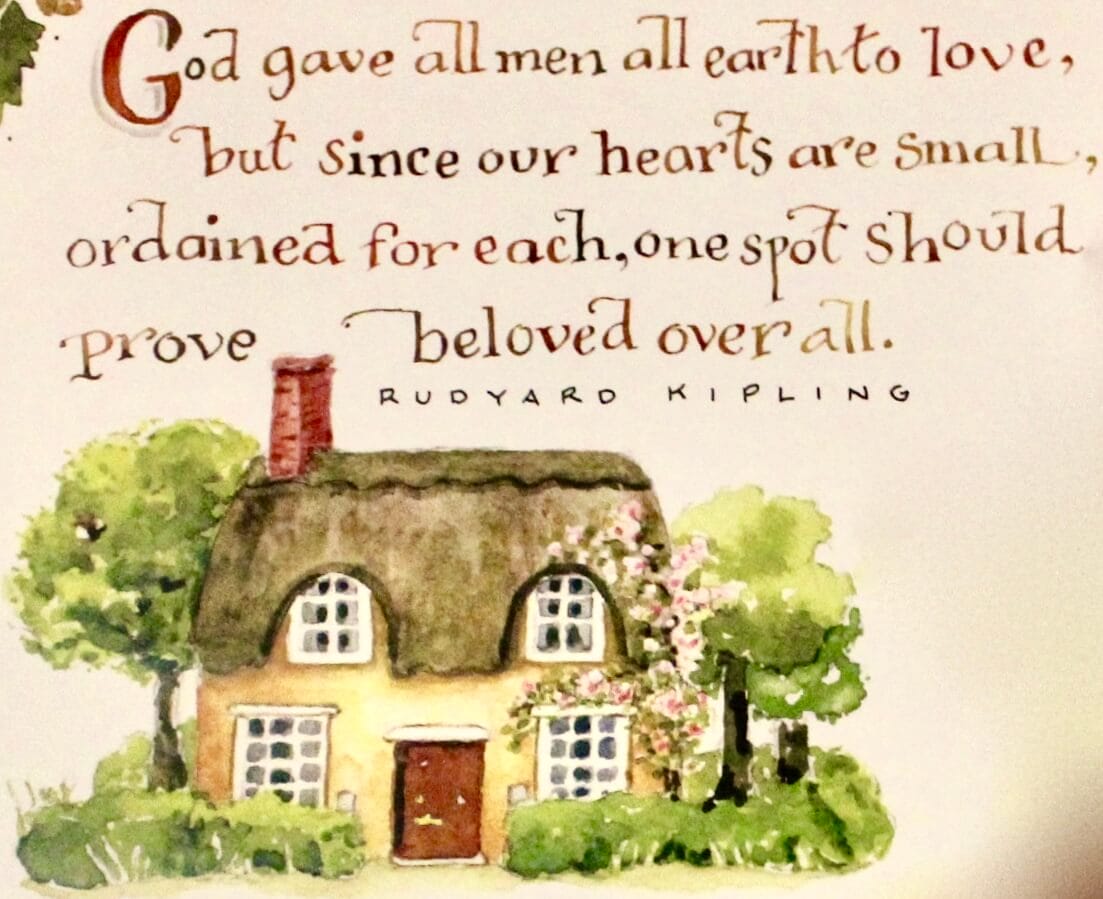 God gave all men all earth to love,
but since our hearts are small,
ordained for each, one spot should
prove beloved over all.
RUDYARD KIPLING